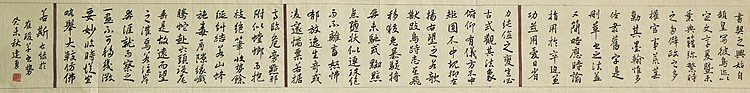 書契之興始自
頡皇寫彼鳥跡以
定文章爰暨末
葉典籍彌繁時
之多僻政之多
權官事荒蕪
勦其墨翰惟多
佐隸舊字是
刪草書之法蓋
又簡略應時諭
指用於卒迫兼
功並用愛日省
力純儉之變豈必
古式觀其法象
俯仰有儀方不中
矩圓不中規抑左
揚右望之若欹
獸跂鳥跱志在飛
移狡兔暴駭將
奔未馳或黝黭
點染狀似連珠絕
而不離畜怒怫
鬱放逸生奇或
凌邃惴慄若據
高臨危旁點邪
附似螳螂而抱
枝絕筆收勢餘
綖糾結若山蜂
施毒看隙緣巇
騰蛇赴穴頭沒尾
垂是故遠而望
之漼焉若注岸
奔涯就而察之
一畫不可移幾微
要妙臨時從宜
略舉大較仿佛
若斯
崔瑗草書勢
癸未秋建